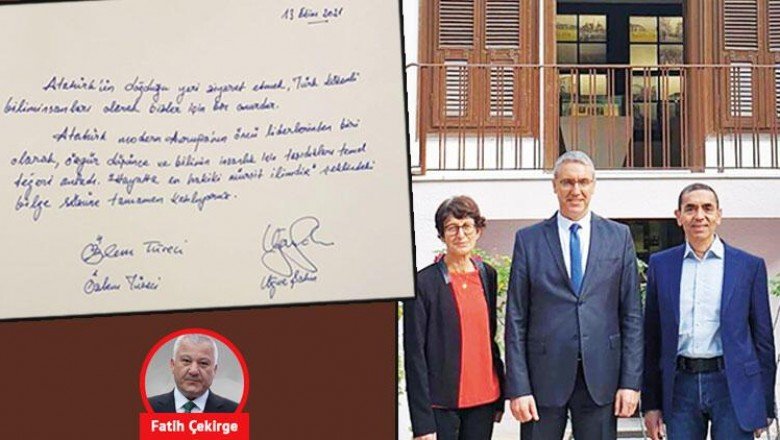 13 Ekim 2021
Atatürk'ün doğduğu yeri ziyaret etmek, Türk kökenli
biliminsanları olarak bizler için bir onurdur.
Atatürk modern Avrupa'nın öncü liderlerinden biri
olarak, özgür düşünce ve bilimin insanlık için taşıdıkları temel
değeri anladı. "Hayatta en hakiki mürşit ilimdir" şeklindeki
bilge sözüne tamamen katılıyoruz.
Özlem Türeci
Özlem Türeci
Uğur Şahin
Fatih Çekirge